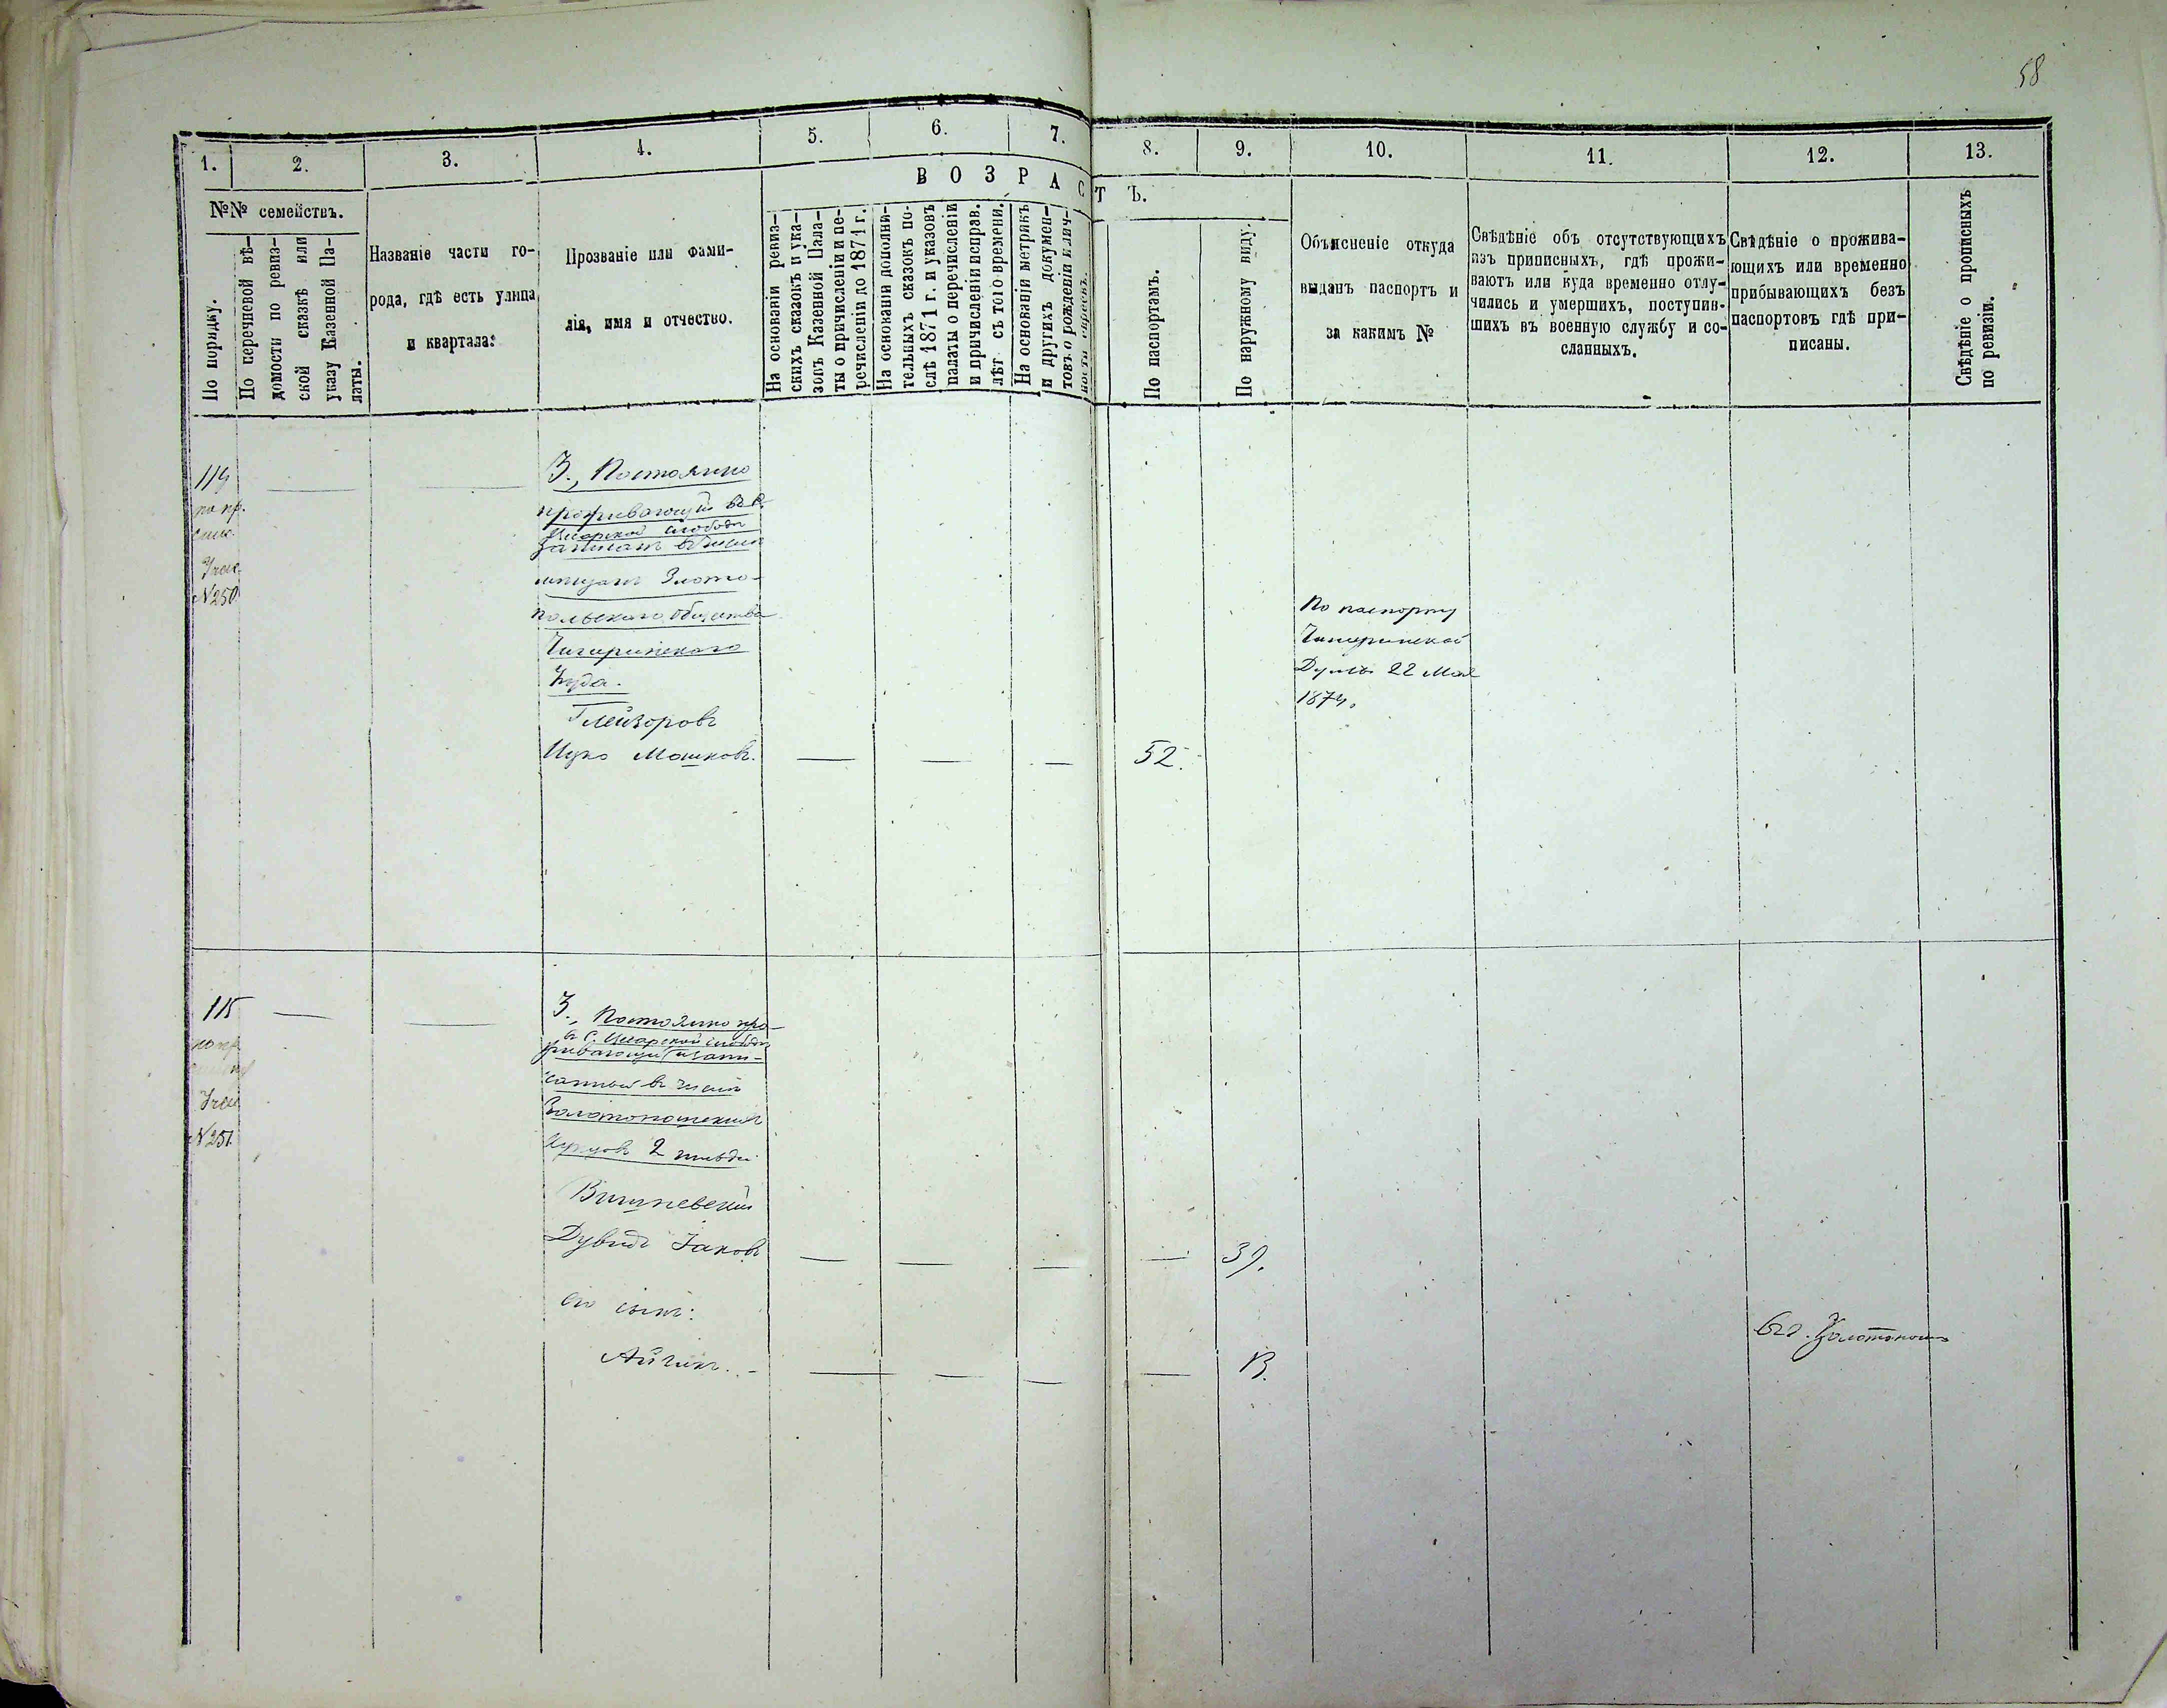 58
1.
2.
3.
4.
5.
6.
7.
8.
9.
10.
11.
12.
13.
В О З Р А С Т Ъ.
№№ семействъ.
По порядку.
По перечневой вѣ-
домости по ревиз-
ской сказкѣ или
указу Казенной Па-
латы.
Названіе части го-
рода, гдѣ есть улица
и квартала:
Прозваніе или фами-
лія, имя и отчество.
На основаніи ревиз-
скихъ сказокъ и ука-
зовъ Казенной Пала-
ты о причисленіи и пе-
речисленіи до 1871 г.
На основаніи дополни-
тельныхъ сказокъ по-
слѣ 1871 г. и указовъ
палаты о перечисленіи
и причисленіи исправ.
лѣт съ того времени.
На основаніи метрикъ
и другихъ докумен-
товъ о рожденіи и лич-
По паспортамъ.
По наружному виду.
Объясненіе откуда
выданъ паспортъ и
за какимъ №
Свѣдѣніе объ отсутствующихъ
изъ приписныхъ, гдѣ прожи-
ваютъ или куда временно отлу-
чились и умершихъ, поступив-
шихъ въ военную службу и со-
сланныхъ.
Свѣдѣніе о прожива-
ющихъ или временно
прибывающихъ безъ
паспортовъ гдѣ при-
писаны.
Свѣдѣніе о прописныхъ
по ревизіи.
114
по пр.
№250
3., Постоянно
проживающій въ с.
Цисарской слободѣ
записанъ въ число
мѣщанъ Злото-
польскаго общества
Чигиринскаго
Уѣзда.
Глейзоровъ
Ицко Мошковъ.
52.
По паспорту
Чигиринской
Думы 22 Мая
1874.
115
по пр.
№251.
3., Постоянно про-
въ с. Цисарской слободѣ
живающій записанный
въ число
Золотоношскихъ
купцовъ 2 гильдіи
Вишневскій
Дувидъ Янковъ
39.
его сынъ:
Айзикъ.
13.
въ г. Золотоноши